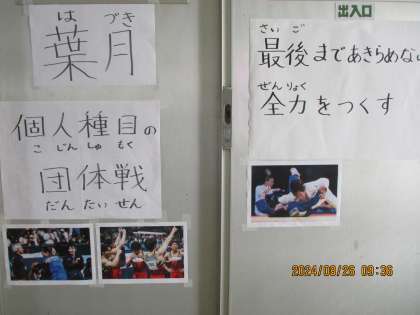 はづき
葉月
個人種目の
こじんしゅもく
団体戦
だんたいせん
出入口
さいご
最後まであきらめない
ぜんりょく
全力をつくす
2024/08/26 09:36